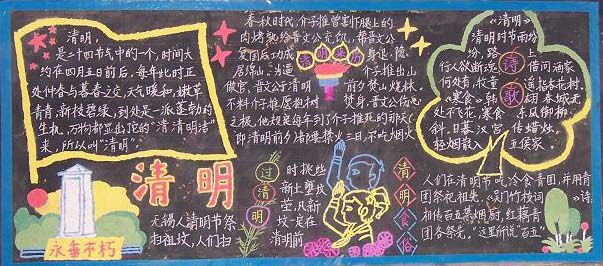 清明，
是二十四节气中的一个，时间大
约在四月五日前后，每年此时正
处仲春与暮春之交，天气暖和，嫩草
青青，新枝碧绿，到处是一派蓬勃的
生机，万物都显出它的“清清明洁”
来，所以叫“清明”。
春秋时代，介子推曾割下腿上的
肉烤熟给晋文公充饥，帮晋文公
复国后功成身退，隐
居绵山。为逼介子推出山
做官，晋文公于清明前夕焚山烧林，
不料介子推愿抱树焚身。晋文公伤心
之极，他规定每年到了介子推死的那天
(即清明前夕)都要禁火三日，不吃烟火
《清明》
清明时节雨纷
纷，路上
行人欲断魂。借问酒家
何处有，牧童遥指杏花村。
《寒食》韩翃 春城无
处不飞花，寒食东风御柳
斜。日暮汉宫传蜡烛，
轻烟散入五侯家。
诗歌
清明
过清明
无锡人清明节祭
扫祖坟，人们扫
时挑些
新土垒坟
茔，凡新
坟一定在
清明前
清明食俗
人们在清明节吃冷食青团，并用青
团祭祀祖先。《吴门竹枝词》
相传百五禁烟厨，红藕青
团各祭先。”这里所说“百五”
永垂不朽